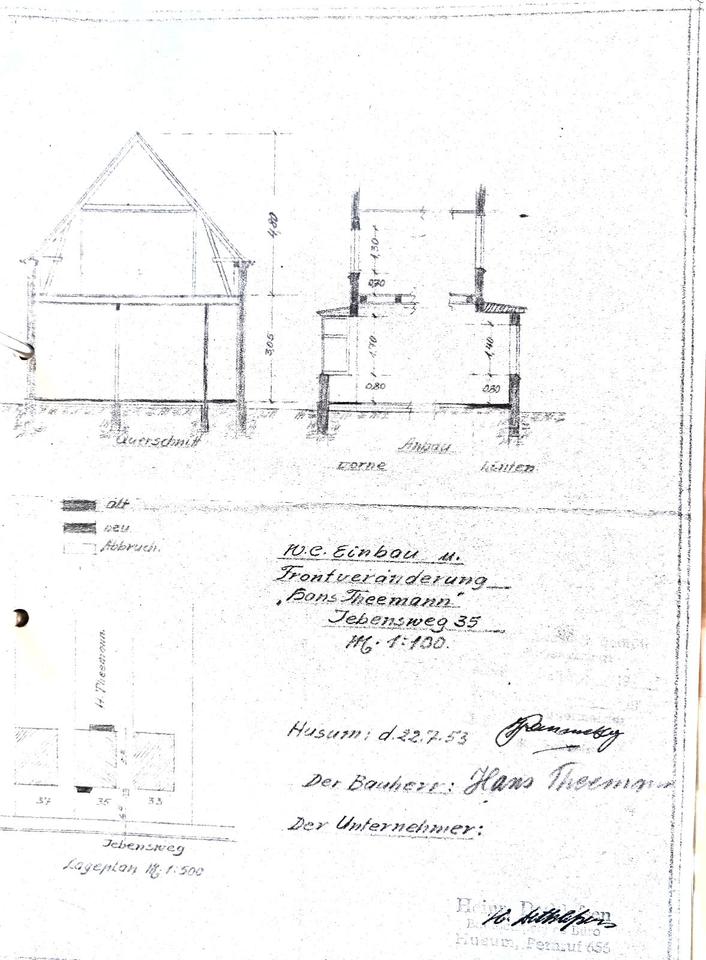 4,80
3,05
1,30
0,70
1,70
0,80
1,40
0,80
Querschnitt
Anbau
vorne
hinten
alt
neu
Abbruch.
W.C. Einbau u.
Frontveränderung
„Hans Theemann"
Jebensweg 35
M. 1:100.
H. Theemann
37
35
33
Jebensweg
Lageplan M. 1:500
Husum: d. 22.7.53
Der Bauherr: Hans Theemann
Der Unternehmer:
Heinr.
Büro
Husum, Fernruf 656